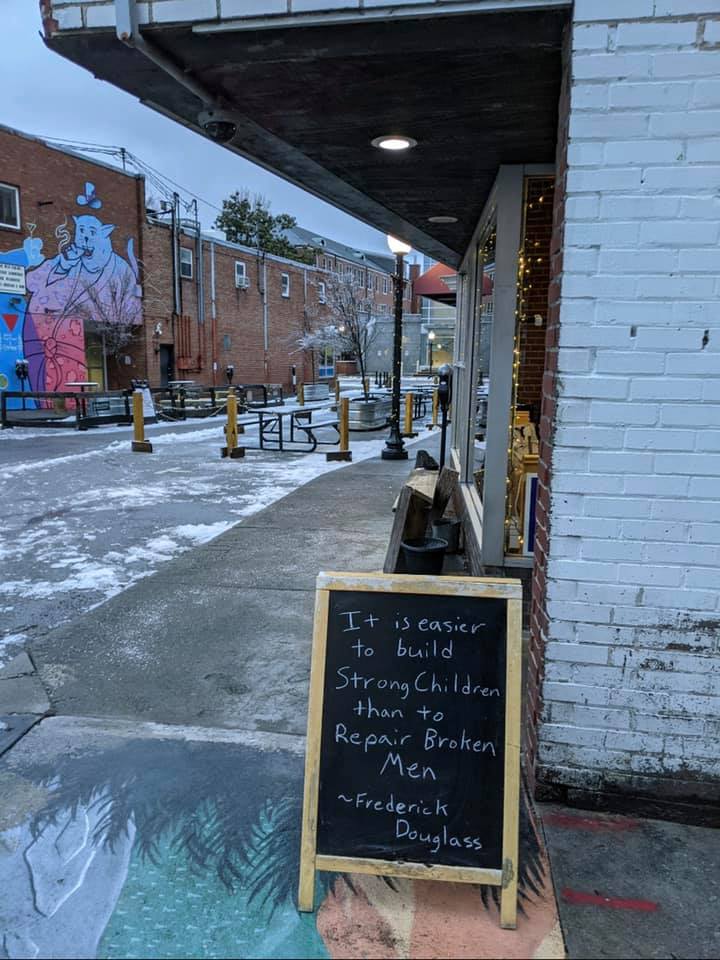 It is easier
to build
Strong Children
than to
Repair Broken
Men
~Frederick
Douglass